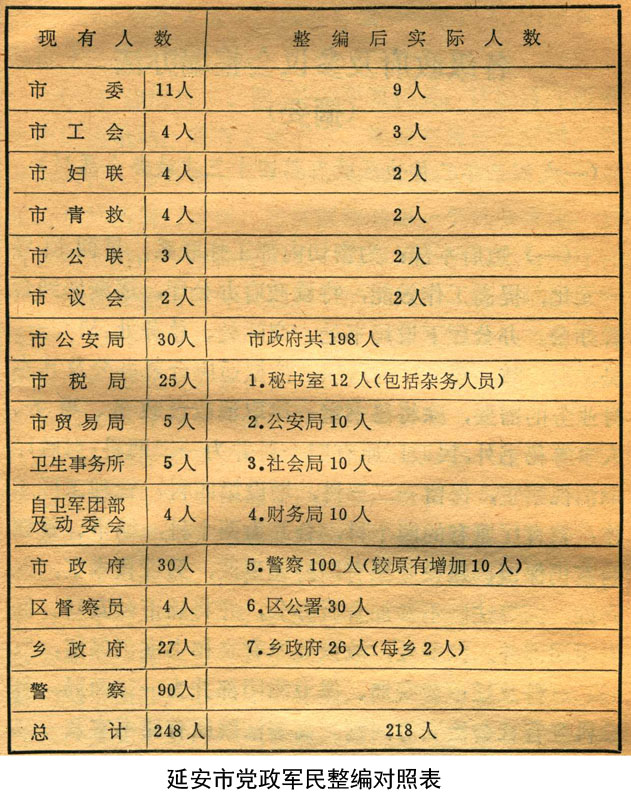 现有人数 整编后实际人数
市委 11人 9人
市工会 4人 3人
市妇联 4人 2人
市青救 4人 2人
市公联 3人 2人
市议会 2人 2人
市公安局 30人 市政府共198人
市税局 25人 1.秘书室12人(包括杂务人员)
市贸易局 5人 2.公安局10人
卫生事务所 5人 3.社会局10人
自卫军团部
及动委会 4人 4.财务局10人
市政府 30人 5.警察100人(较原有增加10人)
区督察员 4人 6.区公署30人
乡政府 27人 7.乡政府26人(每乡2人)
警察 90人
总计 248人 218人
延安市党政军民整编对照表